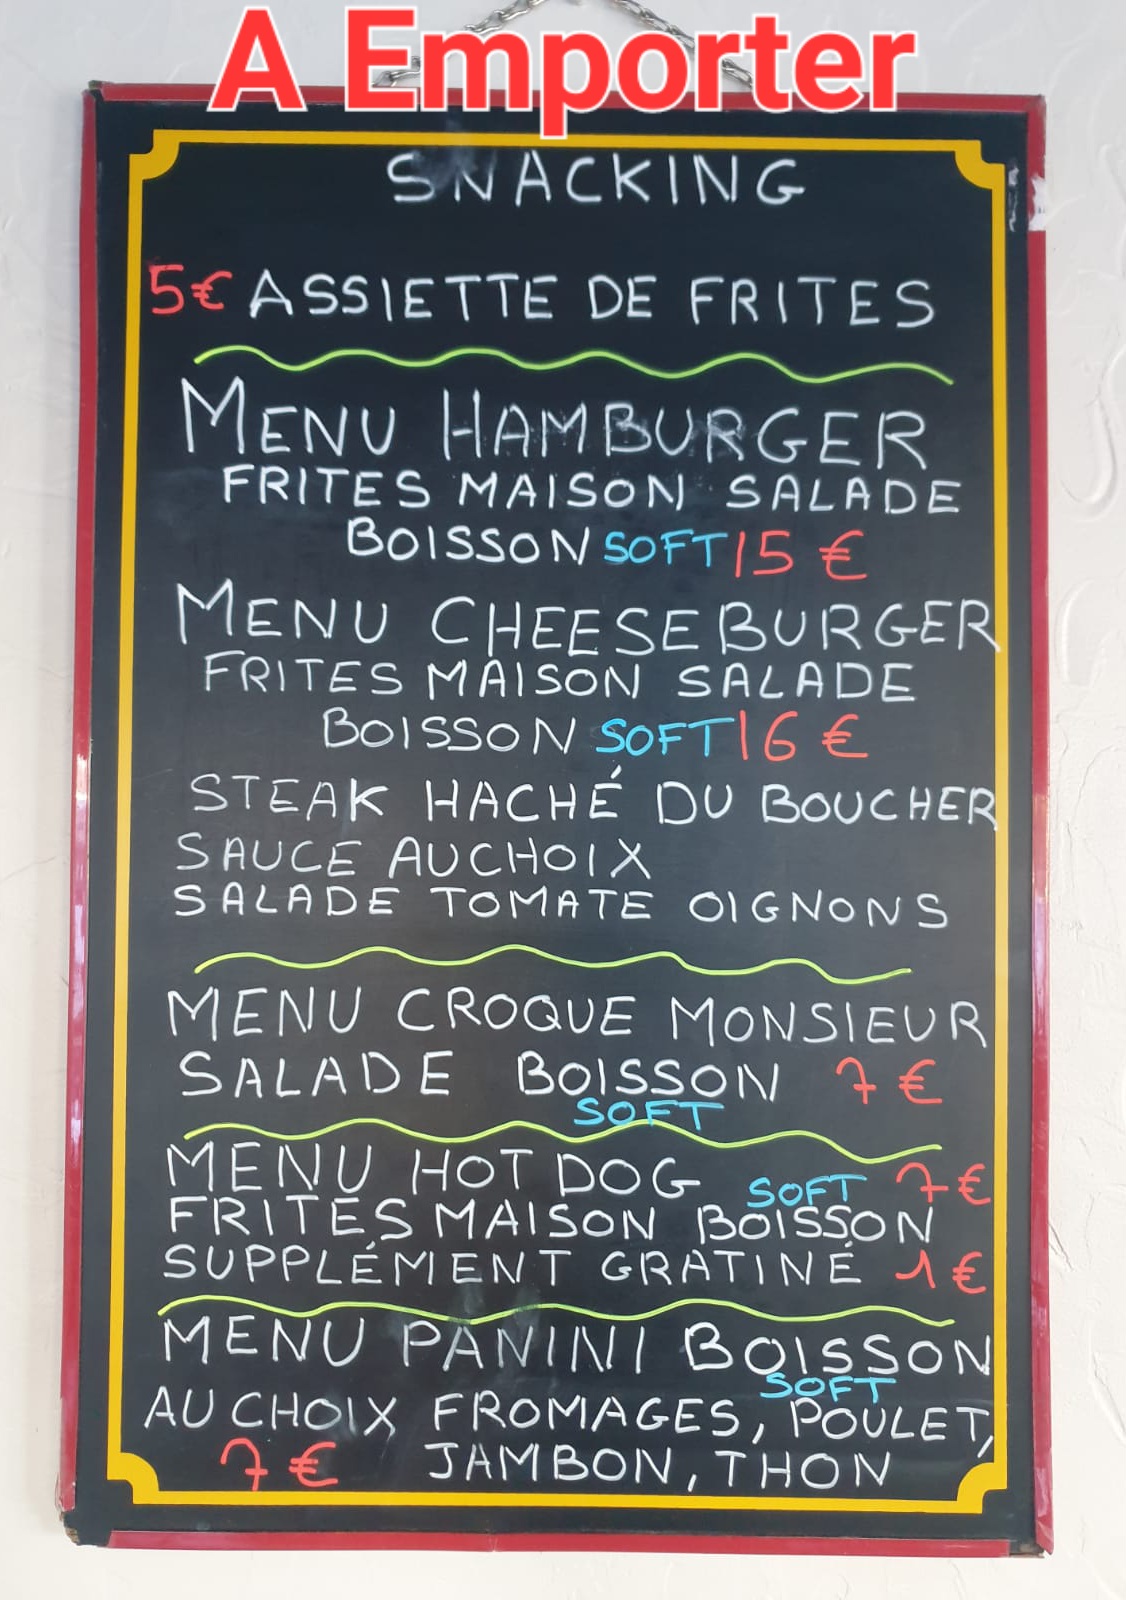 A Emporter
SNACKING
5€ ASSIETTE DE FRITES
MENU HAMBURGER
FRITES MAISON SALADE
BOISSON SOFT 15 €
MENU CHEESEBURGER
FRITES MAISON SALADE
BOISSON SOFT 16 €
STEAK HACHÉ DU BOUCHER
SAUCE AU CHOIX
SALADE TOMATE OIGNONS
MENU CROQUE MONSIEUR
SALADE BOISSON 7 €
SOFT
MENU HOT DOG SOFT 7 €
FRITES MAISON BOISSON
SUPPLÉMENT GRATINÉ 1 €
MENU PANINI BOISSON
SOFT
AU CHOIX FROMAGES, POULET,
7 € JAMBON, THON